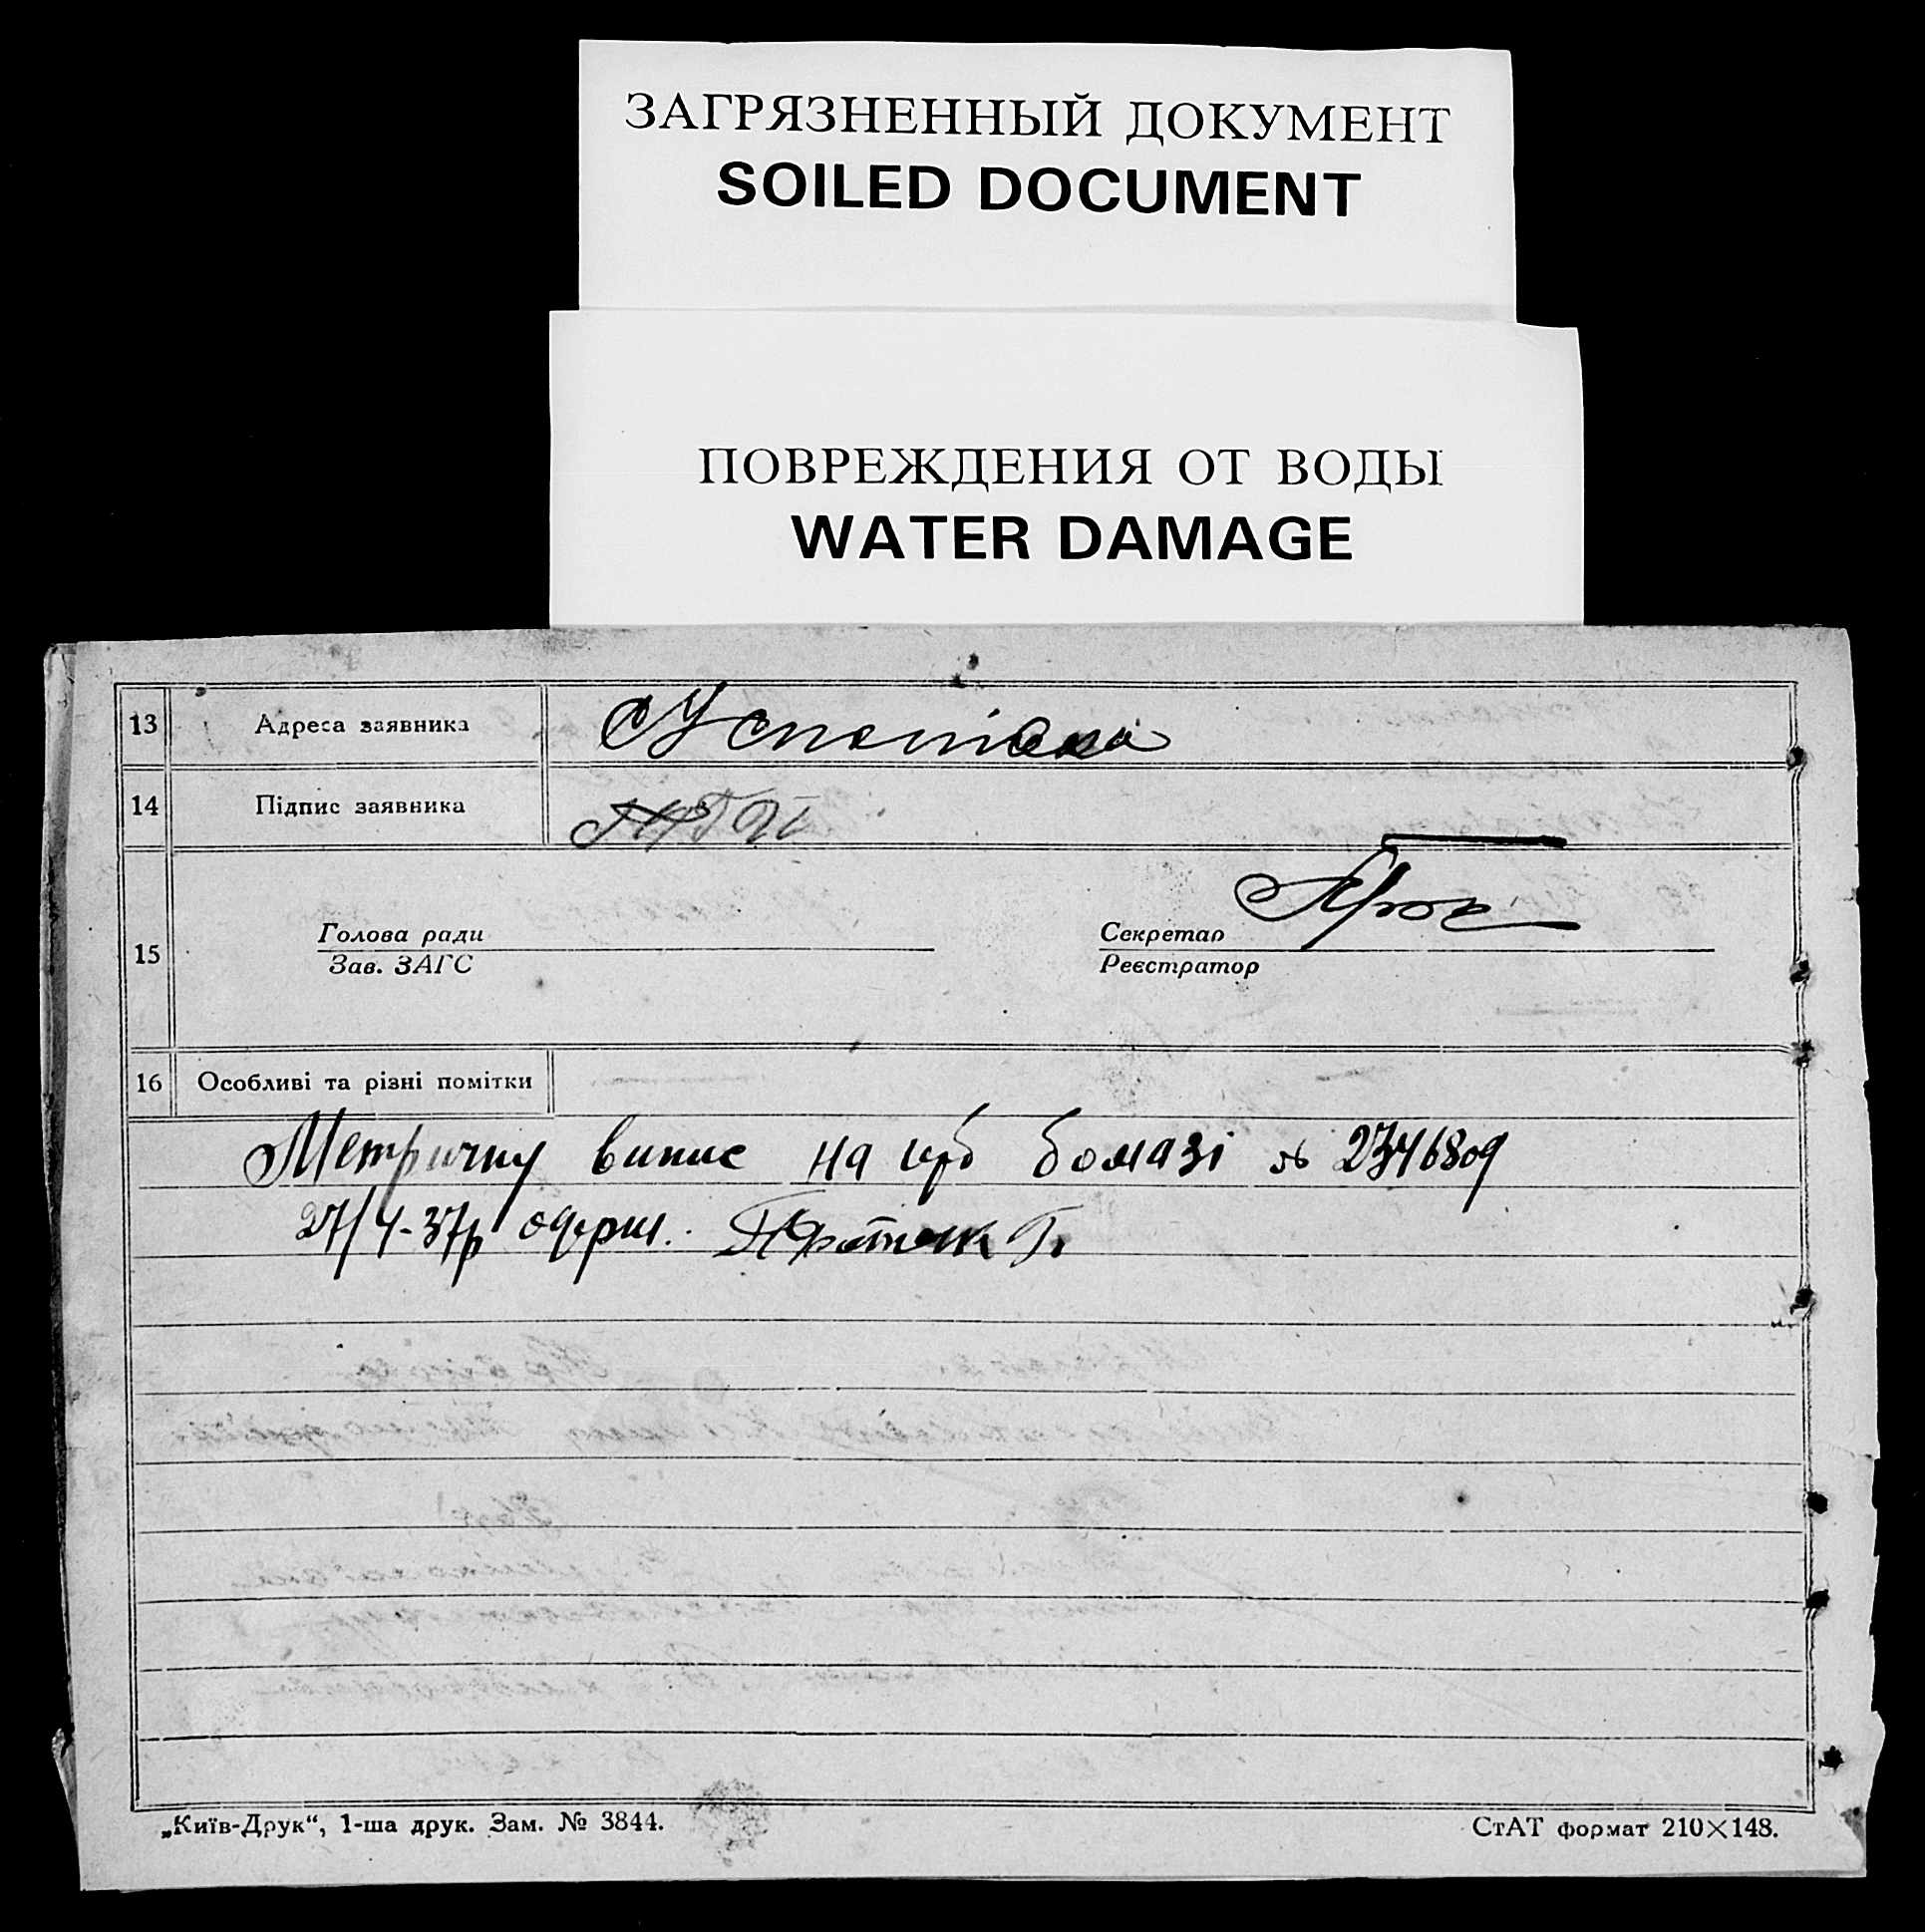 ЗАГРЯЗНЕННЫЙ ДОКУМЕНТ
SOILED DOCUMENT
ПОВРЕЖДЕНИЯ ОТ ВОДЫ
WATER DAMAGE
13 Адреса заявника
14 Підпис заявника
15 Голова ради Секретар
Зав. ЗАГС Реєстратор
16 Особливі та різні помітки
Метричну випис на бомазі № 2346809
27/4-37р одерж.
„Київ-Друк“, 1-ша друк. Зам. № 3844. СтАТ формат 210×148.